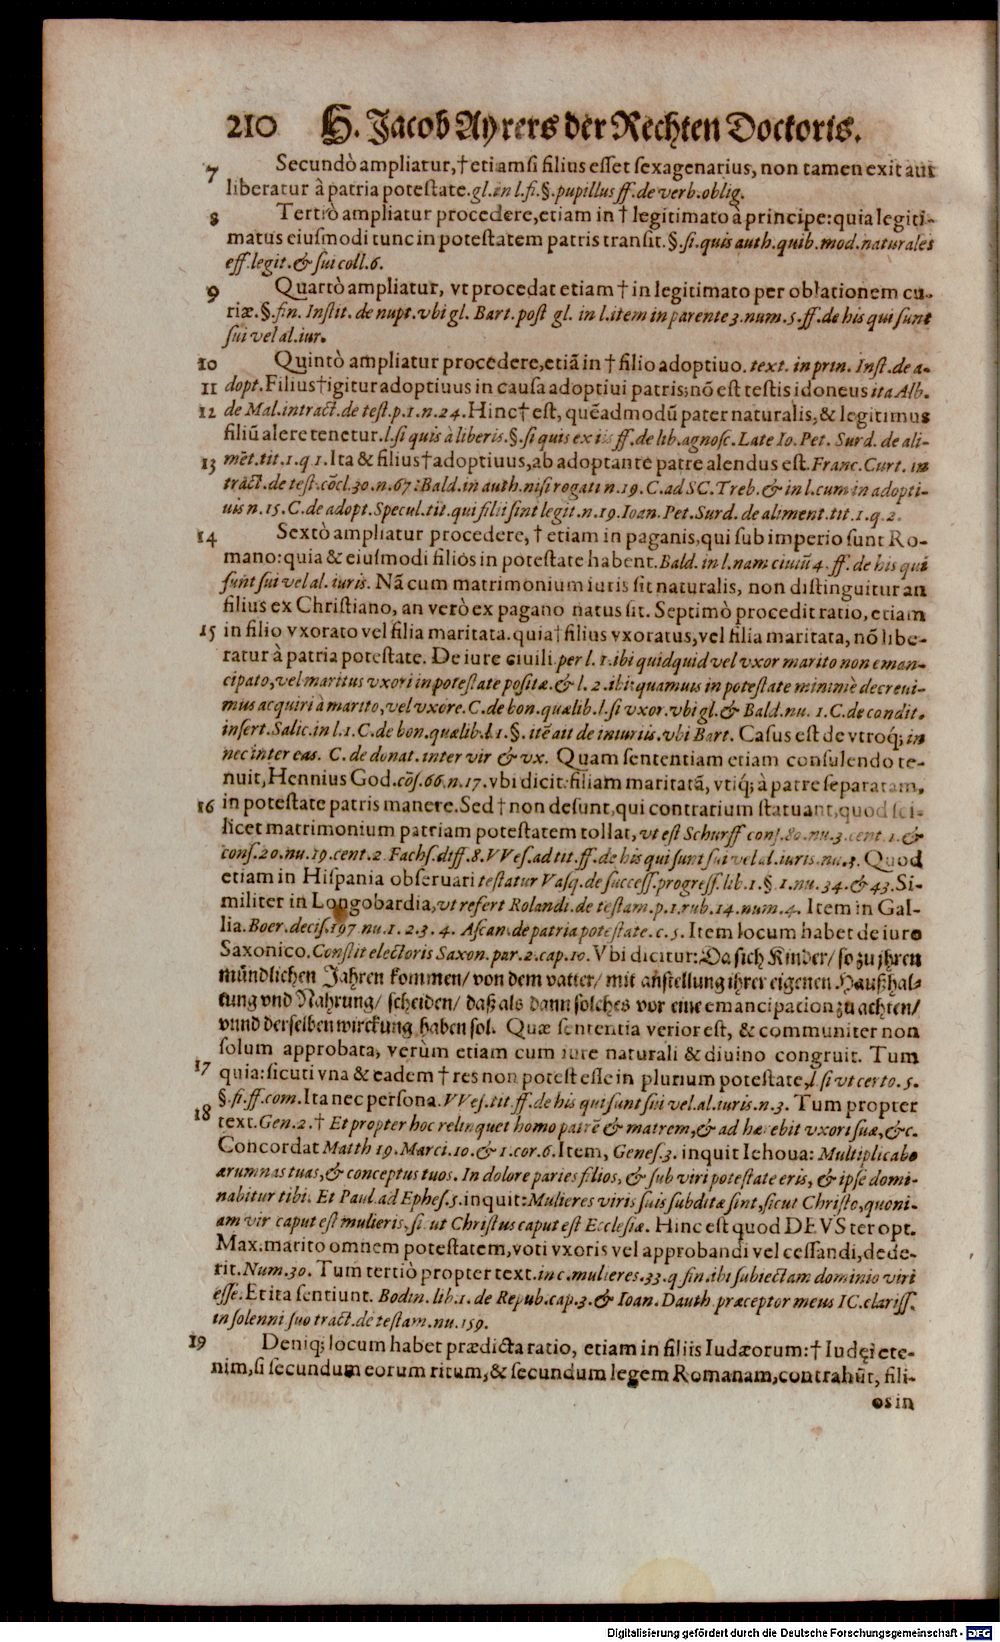 210 H. Jacob Ayrers der Rechten Doctoris.
7 Secundò ampliatur, † etiamsi filius esset sexagenarius, non tamen exit aut
liberatur à patria potestate. gl. in l. fi. §. pupillus ff. de verb. oblig.
8 Tertiò ampliatur procedere, etiam in † legitimato à principe: quia legiti-
matus eiusmodi tunc in potestatem patris transit. §. si. quis auth. quib. mod. naturales
eff. legit. & sui coll. 6.
9 Quartò ampliatur, vt procedat etiam † in legitimato per oblationem cu-
riæ. §. fin. Instit. de nupt. vbi gl. Bart. post gl. in l. item in parente 3. num. 5. ff. de his qui sunt
sui vel al. iur.
10 Quintò ampliatur procedere, etiã in † filio adoptiuo. text. in prin. Inst. de a-
11 dopt. Filius † igitur adoptiuus in causa adoptiui patris, nõ est testis idoneus ita Alb.
12 de Mal. in tract. de test. p. 1. n. 24. Hinc † est, quẽadmodũ pater naturalis, & legitimus
filiũ alere tenetur. l. si quis à liberis. §. si quis ex iis ff. de lib. agnosc. Late Io. Pet. Surd. de ali-
13 mẽt. tit. 1. q 1. Ita & filius † adoptiuus, ab adoptante patre alendus est. Franc. Curt. in
tract. de test. cõcl. 30. n. 67: Bald. in auth. nisi rogati n. 19. C. ad SC. Treb. & in l. cum in adopti-
uis n. 15. C. de adopt. Specul. tit. qui filii sint legit. n. 19. Ioan. Pet. Surd. de aliment. tit. 1. q. 2.
14 Sextò ampliatur procedere, † etiam in paganis, qui sub imperio sunt Ro-
mano: quia & eiusmodi filios in potestate habent. Bald. in l. nam ciuiũ 4. ff. de his qui
sunt sui vel al. iuris. Nã cum matrimonium iuris sit naturalis, non distinguitur an
filius ex Christiano, an verò ex pagano natus sit. Septimò procedit ratio, etiam
15 in filio vxorato vel filia maritata. quia † filius vxoratus, vel filia maritata, nõ libe-
ratur à patria potestate. De iure ciuili per l. 1. ibi quidquid vel vxor marito non eman-
cipato, vel maritus vxori in potestate positæ. & l. 2. ibi: quamuis in potestate minimè decreui-
mus acquiri à marito, vel vxore. C. de bon. quælib. l. si vxor. vbi gl. & Bald. nu. 1. C. de condit.
insert. Salic. in l. 1. C. de bon. quælib. l. 1. §. itẽ ait de iniuriis. vbi Bart. Casus est de vtroq́; in
nec inter eas. C. de donat. inter vir & vx. Quam sententiam etiam consulendo te-
nuit, Hennius God. cõs. 66. n. 17. vbi dicit: filiam maritatã, vtiq́; à patre separatam,
16 in potestate patris manere. Sed † non desunt, qui contrarium statuant, quod sci-
licet matrimonium patriam potestatem tollat, vt est Schurff cons. 80. nu. 3. cent. 1. &
cons. 20. nu. 19. cent. 2. Fachs. diff. 8. VVes. ad tit. ff. de his qui sunt sui vel al. iuris. nu. 3. Quod
etiam in Hispania obseruari testatur Vasq. de success. progress. lib. 1. §. 1. nu. 34. & 43. Si-
militer in Longobardia, vt refert Rolandi. de testam. p. 1. rub. 14. num. 4. Item in Gal-
lia. Boer. decis. 197 nu. 1. 2. 3. 4. Ascan. de patria potestate. c. 5. Item locum habet de iure
Saxonico. Constit electoris Saxon. par. 2. cap. 10. Vbi dicitur: Da sich Kinder/ so zu jhren
mündlichen Jahren kommen/ von dem vatter/ mit anstellung ihrer eigenen Haußhal-
tung vnd Nahrung/ scheiden/ daß als dann solches vor eine emancipation zu achten/
vnnd derselben wirckung haben sol. Quæ sententia verior est, & communiter non
solum approbata, verùm etiam cum iure naturali & diuino congruit. Tum
17 quia: sicuti vna & eadem † res non potest esse in plurium potestate, l. si vt certo. 5.
§. fi. ff. com. Ita nec persona. VVes. tit. ff. de his qui sunt sui vel. al. iuris. n. 3. Tum propter
18 text. Gen. 2. † Et propter hoc relinquet homo patrẽ & matrem, & ad hærebit vxori suæ, &c.
Concordat Matth 19. Marci. 10. & 1. cor. 6. Item, Genes. 3. inquit Iehoua: Multiplicabo
ærumnas tuas, & conceptus tuos. In dolore paries filios, & sub viri potestate eris, & ipse domi-
nabitur tibi. Et Paul. ad Ephes. 5. inquit: Mulieres viris suis subditæ sint, sicut Christo, quoni-
am vir caput est mulieris, sicut Christus caput est Ecclesiæ. Hinc est quod DEVS ter opt.
Max. marito omnem potestatem, voti vxoris vel approbandi vel cessandi, dede-
rit. Num. 30. Tum tertiò propter text. in c. mulieres. 33. q fin. ibi subiectam dominio viri
esse. Et ita sentiunt. Bodin. lib. 1. de Repub. cap. 3. & Ioan. Dauth præceptor meus IC. clariss.
in solenni suo tract. de testam. nu. 159.
19 Deniq; locum habet prædicta ratio, etiam in filiis Iudæorum: † Iudęi ete-
nim, si secundum eorum ritum, & secundum legem Romanam, contrahũt, fili-
os in
Digitalisierung gefördert durch die Deutsche Forschungsgemeinschaft - DFG